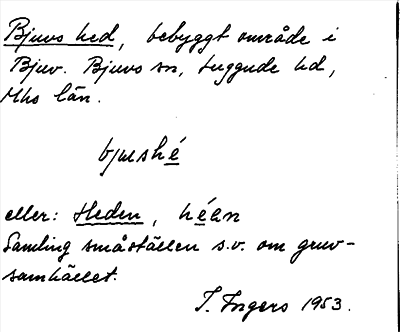 Bjuvs hed, bebyggt område i
Bjuv. Bjuvs sn, Luggude hd,
Mhs län.
bjushé
eller: Heden, héan
Samling småställen s.v. om gruv-
samhället.
I. Ingers 1953.